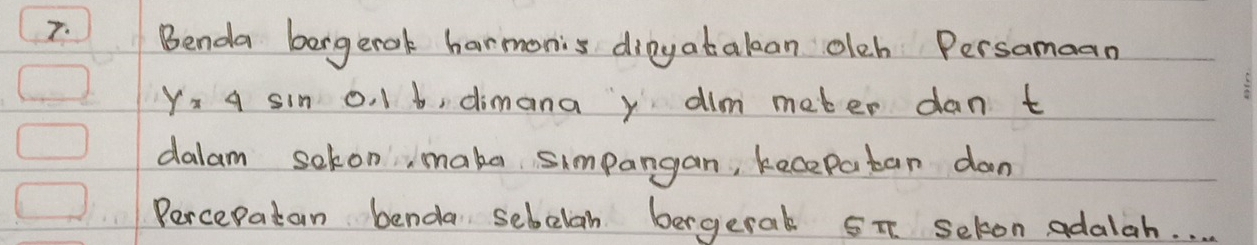 7. Benda bergerak harmonis dinyatakan oleh Persamaan
y = 4 sin 0.1 t, dimana y dlm meter dan t
dalam sekon, maka simpangan, kecepatan dan
Percepatan benda setelah bergerak 5π sekon adalah....